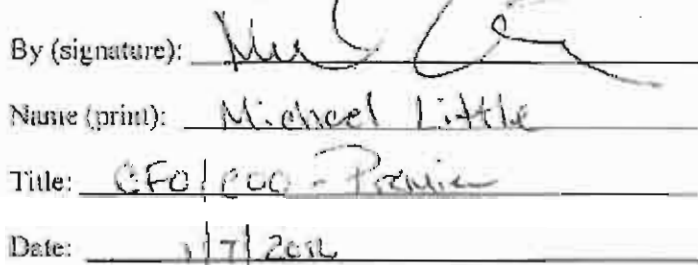 By (signature):
Name (print): Michael Little
Title: CFO/COO - Premier
Date: